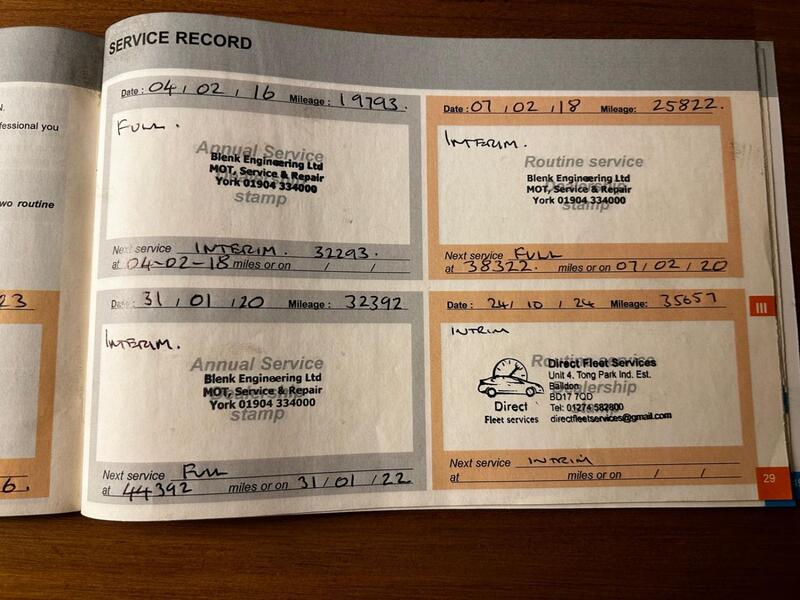 N.
fessional you
wo routine
23
6.
SERVICE RECORD
Date : 04 / 02 / 16 Mileage : 19793.
FULL.
Annual Service
Blenk Engineering Ltd
MOT, Service & Repair
York 01904 334000
stamp
Next service INTERIM. 32293.
at 04-02-18 miles or on / /
Date : 07 / 02 / 18 Mileage: 25822.
INTERIM.
Routine service
Blenk Engineering Ltd
MOT, Service & Repair
York 01904 334000
stamp
Next service FULL
at 38322. miles or on 07/02/20
Date : 31 / 01 / 20 Mileage : 32392
INTERIM.
Annual Service
Blenk Engineering Ltd
MOT, Service & Repair
York 01904 334000
stamp
Next service FULL
at 44392 miles or on 31/01/22
Date : 24/ 10 / 24 Mileage: 35657
INTRIM
Routine service
Direct Fleet Services
Unit 4. Tong Park Ind. Est.
Baildon
Dealership
BD17 7QD
Tel: 01274 582800
directfleetservices@gmail.com
Direct
Fleet services
Next service INTRIM
at miles or on / /
III
29